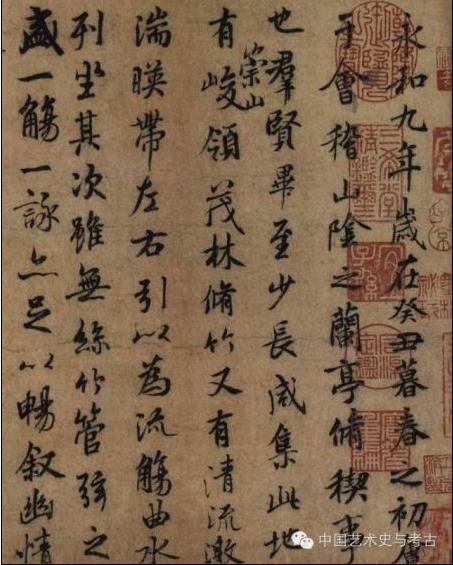 永和九年歲在癸丑暮春之初會
于會稽山陰之蘭亭脩稧事
也羣賢畢至少長咸集此地
有崇山峻領茂林脩竹又有清流激
湍暎帶左右引以為流觴曲水
列坐其次雖無絲竹管弦之
盛一觴一詠亦足以暢叙幽情
中国艺术史与考古